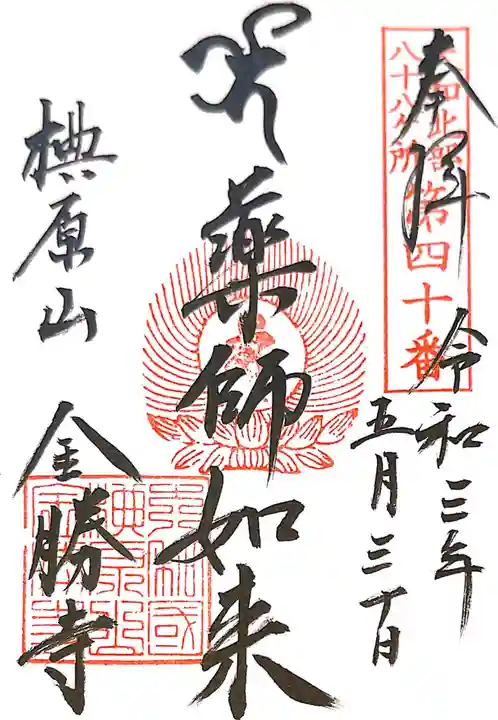 奉拝
大和北部
八十八ヶ所
第四十番
令和三年
五月三十日
薬師如来
椣原山
金勝寺